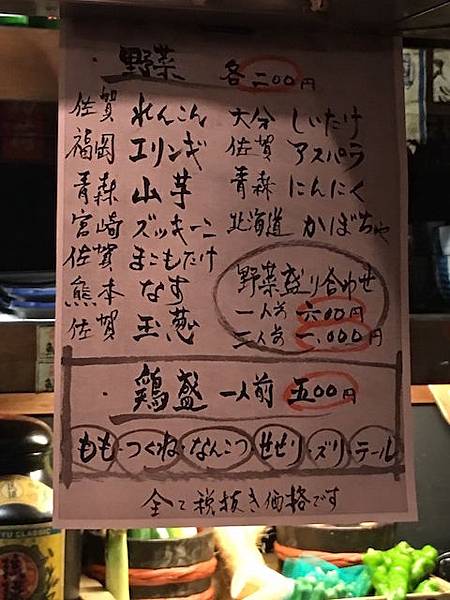 ・野菜 各二〇〇円
佐賀 れんこん
福岡 エリンギ
青森 山芋
宮崎 ズッキーニ
佐賀 まこもだけ
熊本 なす
佐賀 玉葱
大分 しいたけ
佐賀 アスパラ
青森 にんにく
北海道 かぼちゃ
野菜盛り合わせ
一人前 六〇〇円
二人前 一、〇〇〇円
・鶏盛 一人前 五〇〇円
もも・つくね・なんこつ・せせり・ズリ・テール
全て税抜き価格です